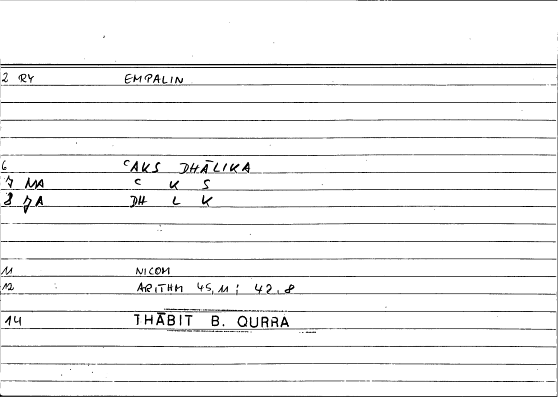 2 RY EMPALIN
6 ꜤAKS DHĀLIKA
7 MA Ꜥ K S
8 JA DH L K
11 NICOM
12 ARITHM 45,11; 42,8
14 THĀBIT B. QURRA